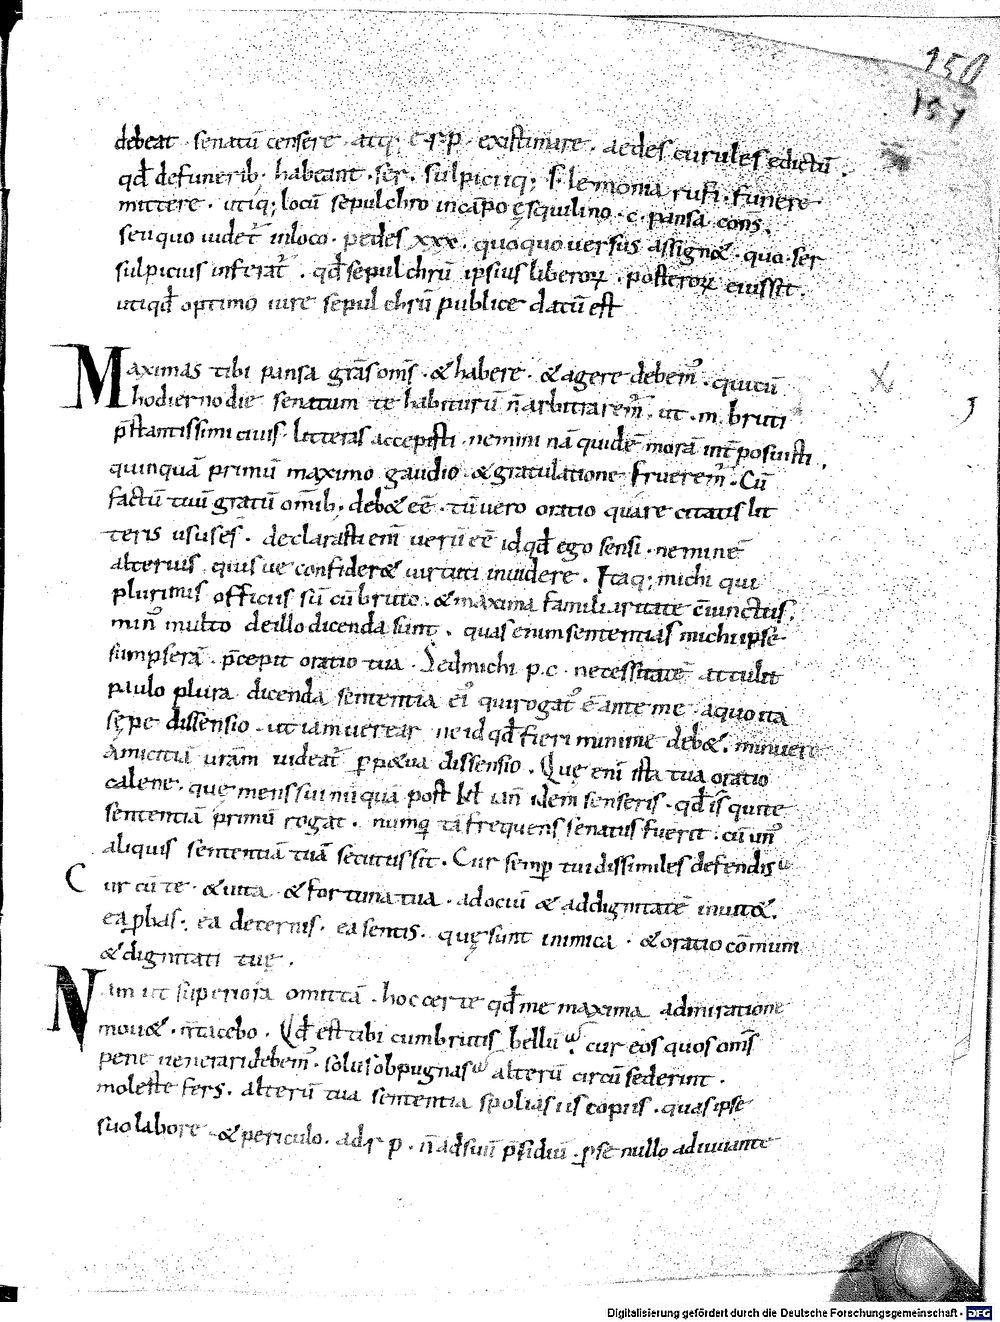 150
151
debeat · senatū censere · atq; e r p · existimare · aedes curules edictū ·
qđ defunerib; habeant · ser · sulpiciiq; s · lemonia rufi · funere
mittere · utiq; locū sepulchro incāpo ęsquilino · c · pansa cons̄ ·
seu quo uidet̄ inloco · pedes xxx · quoquouersus assign& · quo · ser
sulpicius inferat̄ · qđ sepulchrū ipsius liberoꝝ · posteroꝝ eiussit ·
utiqđ optimo iure sepulchrū publice datū est
Maximas tibi pansa grās om̄s · & habere · & agere debem᷒ · qui cū
hodierno die senatum te habiturū n̄ arbitrarem᷒ · ut · m · bruti
p̄stantissimi ciuis · litteras accepisti · nemini nā quidē morā int̄posuisti ·
quinquā primū maximo gaudio · & gratulatione frueremʼ · Cū
factū tuū gratū omīb; deb& eē · tū uero oratio quare citatis lit
teris usus es · declarasti enī uerū eē id qđ ego sensi · neminē
alterius quisue confider& uirtuti inuidere · Itaq; michi qui
plurimis officiis sū cū bruto · & maxima familiaritate c̄iunctus ·
min᷒ multo deillo dicenda sunt · quas enim sententias michi ipse
sumpserā · p̄cepit oratio tua · Sed michi p · c · necessitatē attulit
paulo plura dicenda sententia ei᷒ qui rogat᷒ ē ante me · a quo ita
sępe dissensio · ut iam uerear ne id qđ fieri minime deb& · minuere
amicitiā urām uideat̄ ꝑp&ua dissensio · Quę enī ista tua oratio
calene · quę mens sui nūquā post kł ian̄ idem senseris · qđ is qui te
sententiā primū rogat · numq̄ tā frequens senatus fuerit · cū un᷒
aliquis sententiā tuā secutus sit · Cur semꝑ tui dissimiles defendis
Cur cū te · & uita · & fortuna tua · ad ociū & ad dignitatē inuit& ·
ea ꝓbas · ea decernis · ea sentis · quę sunt inimica · & oratio cōmuni
& dignitati tuę ·
Nam ut superiora omittā · hoc certe qđ me maxima admiratione
mou& · n̄ tacebo · Qđ est tibi cum brutis bellū cur eos quos om̄s
pene uenerari debem᷒ · solus obpugnas alterū circūsederint ·
moleste fers · alterū tua sententia spolias iis copiis · quas ipse
suo labore · & periculo · ad r p · n̄ ad suū p̄sidiū · ꝑ se nullo adiuuante
Digitalisierung gefördert durch die Deutsche Forschungsgemeinschaft - DFG